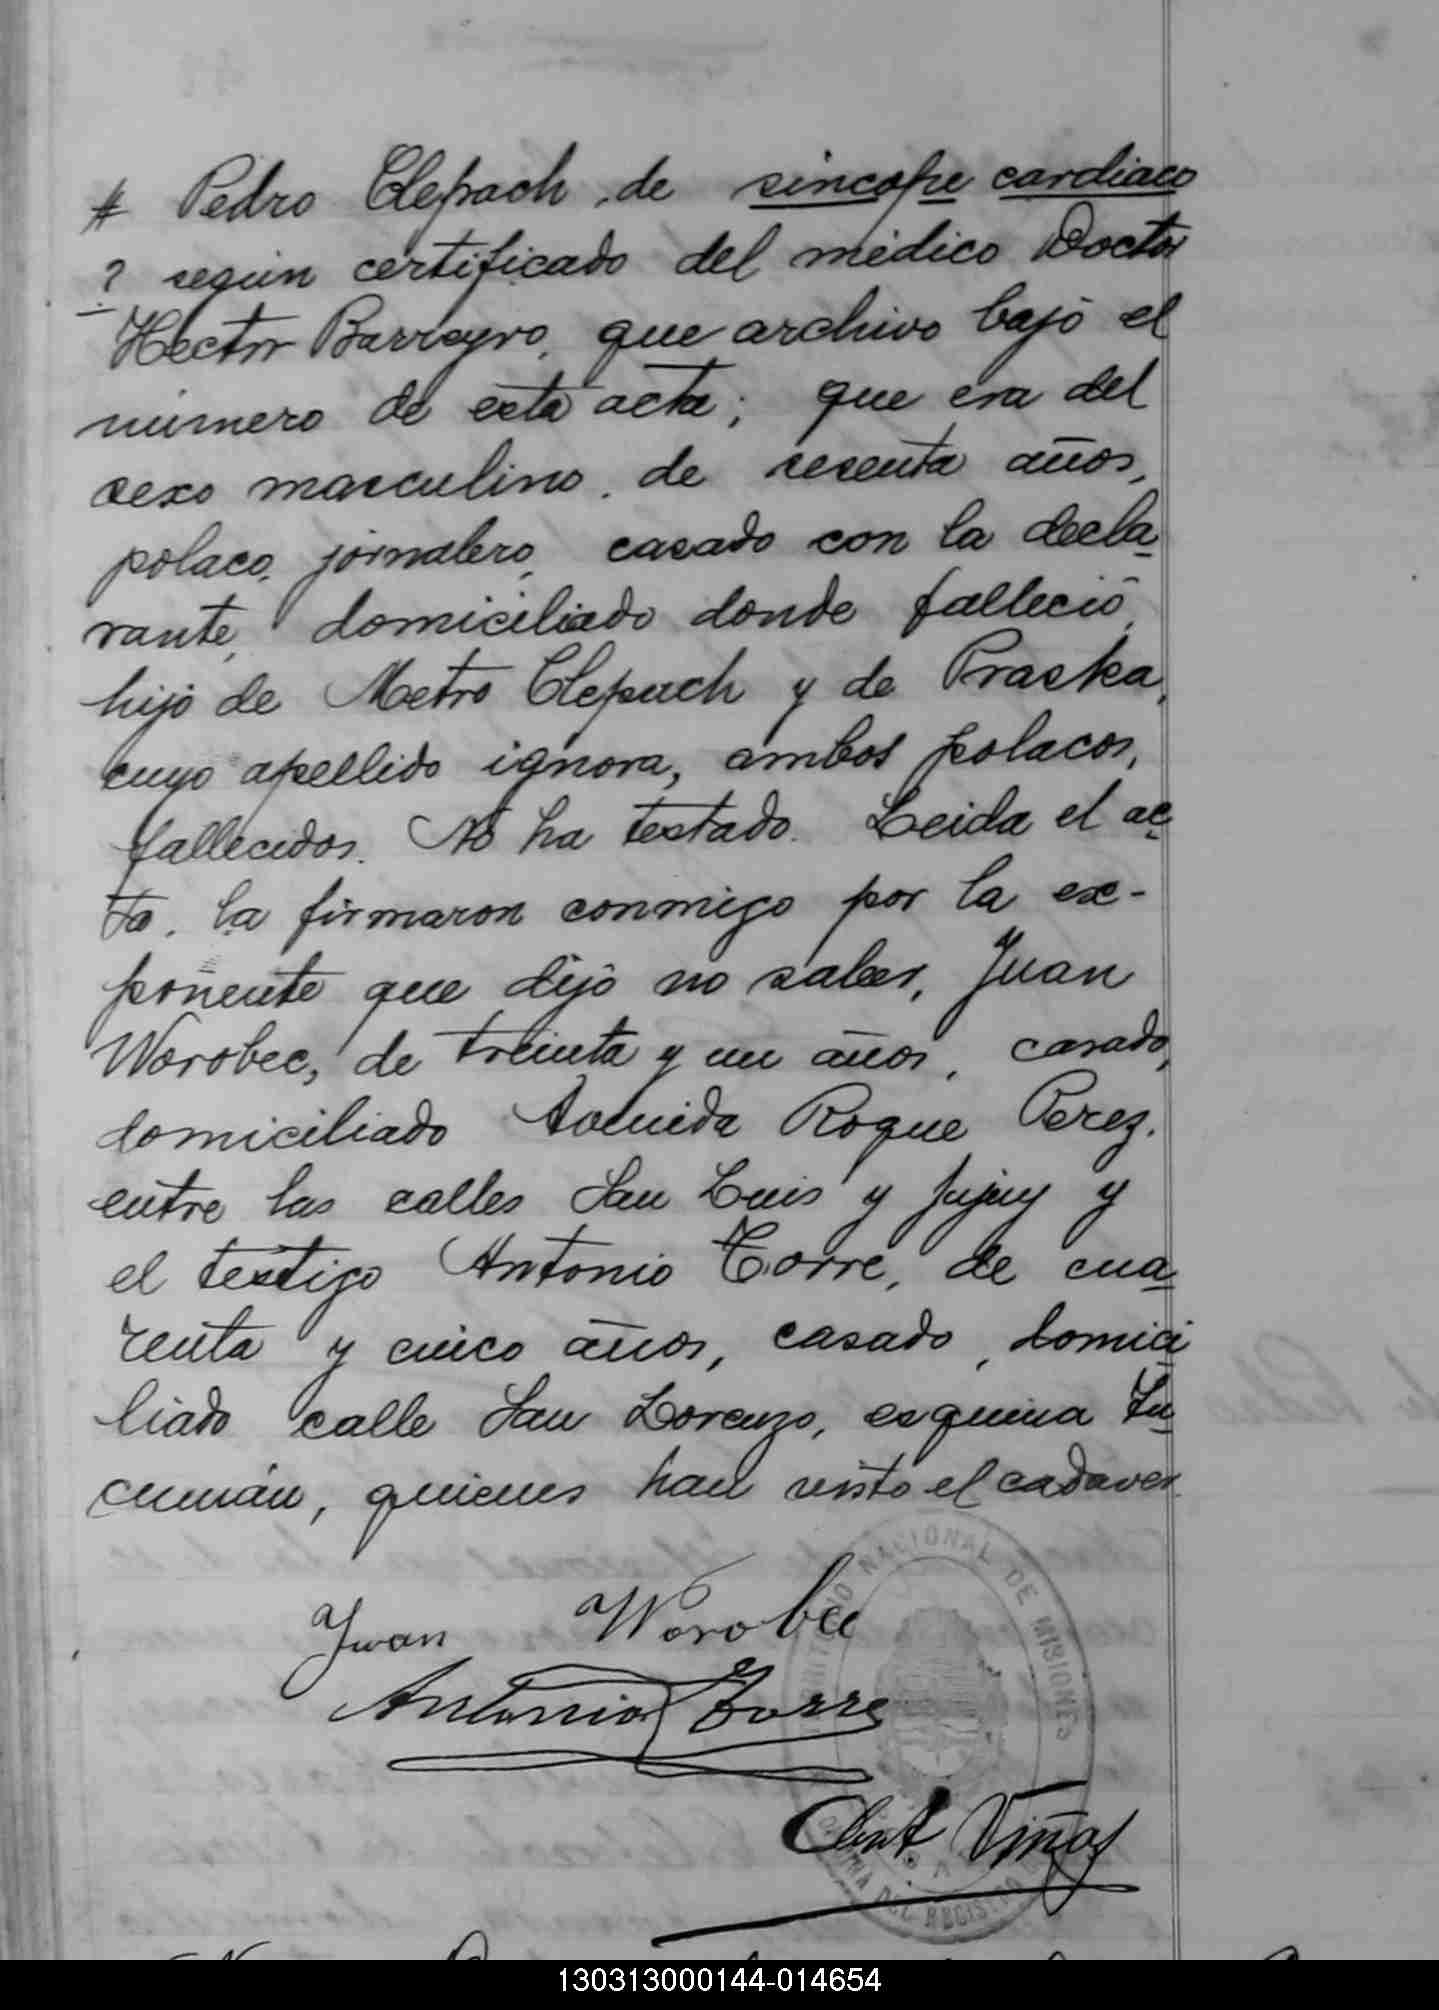 # Pedro Clepach, de sincope cardiaco
? según certificado del médico Doctor
Hector Barreyro, que archivo bajo el
número de esta acta; que era del
sexo masculino, de sesenta años,
polaco, jornalero, casado con la decla-
rante, domiciliado donde falleció,
hijo de Metro Clepach y de Praska,
cuyo apellido ignora, ambos polacos,
fallecidos. No ha testado. Leida el ac-
ta, la firmaron conmigo por la ex-
ponente que dijo no saber, Juan
Worobec, de treinta y un años, casado,
domiciliado Avenida Roque Perez,
entre las calles San Luis y Jujuy y
el testigo Antonio Torre, de cua-
renta y cinco años, casado, domici
liado calle San Lorenzo, esquina Tu-
cumán, quienes han visto el cadaver.
Juan Worobec
Antonio Torre
Viñas
TERRITORIO NACIONAL DE MISIONES
OFICINA DEL REGISTRO
130313000144-014654